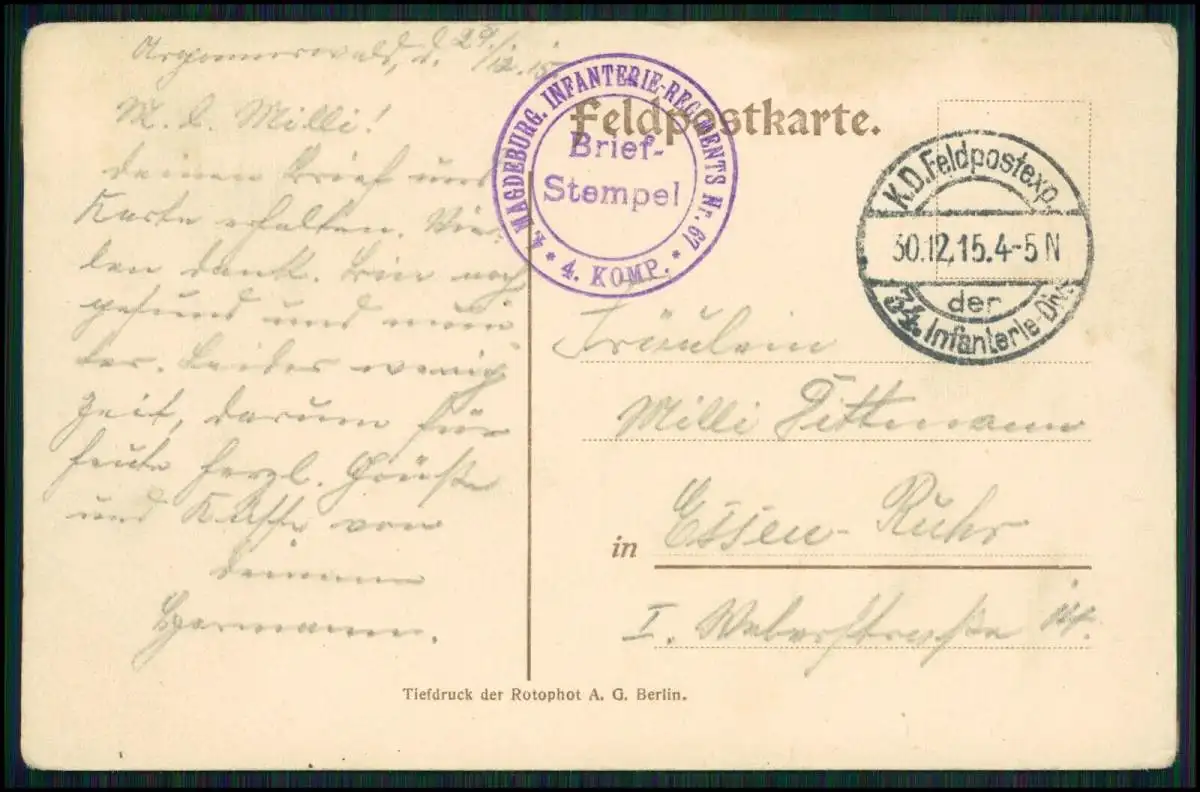 Argonnerwald, d. 29./12.15.
M. l. Milli!
deinen Brief und
Karte erhalten. Vie-
len dank. Bin noch
gesund und mun
ter. Leider wenig
Zeit, darum für
heute herzl. Grüße
und Küsse von
deinem
Hermann.
Feldpostkarte.
4. MAGDEBURG. INFANTERIE-REGIMENTS Nr. 67
Brief-
Stempel
* 4. KOMP. *
K.D.Feldpostexp.
30.12.15.4-5N
der
34. Infanterie-Div.
Fräulein
Milli Dittmann
in Essen-Ruhr
I. Weberstraße
Tiefdruck der Rotophot A. G. Berlin.